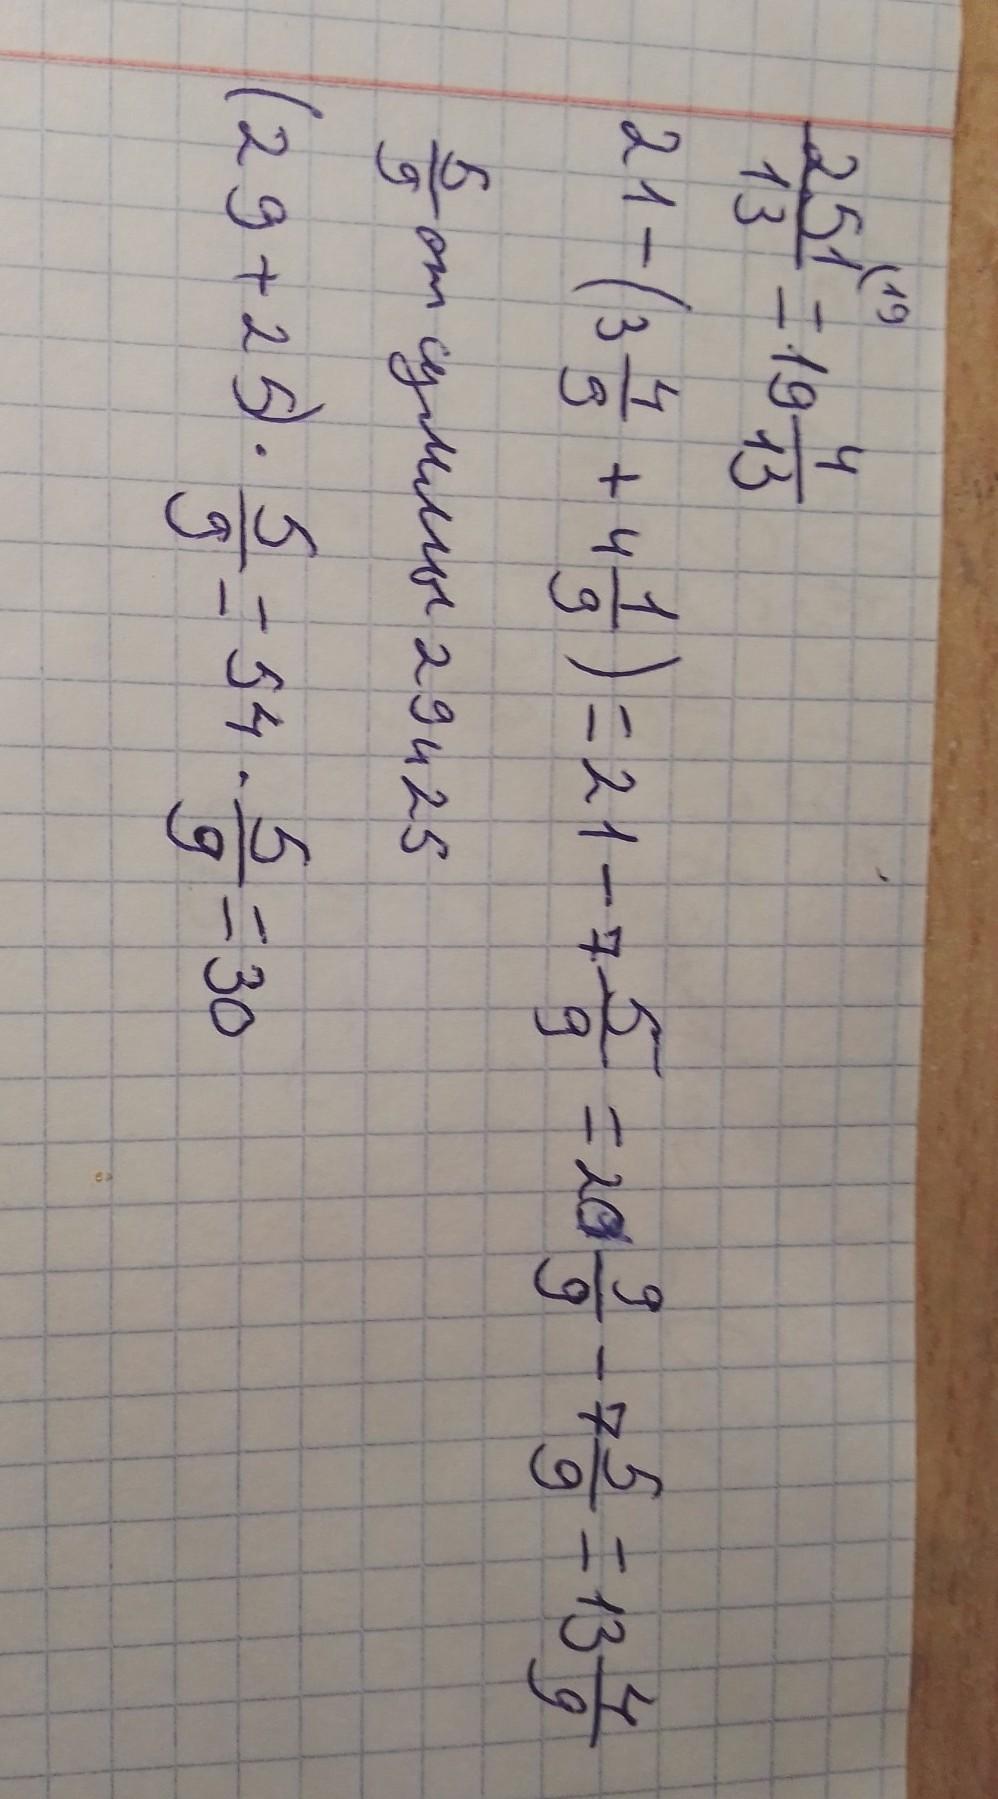 251/13 (19 = 19 4/13
21 - (3 4/9 + 4 1/9) = 21 - 7 5/9 = 20 9/9 - 7 5/9 = 13 4/9
5/9 от суммы 29 и 25
(29 + 25) · 5/9 = 54 · 5/9 = 30